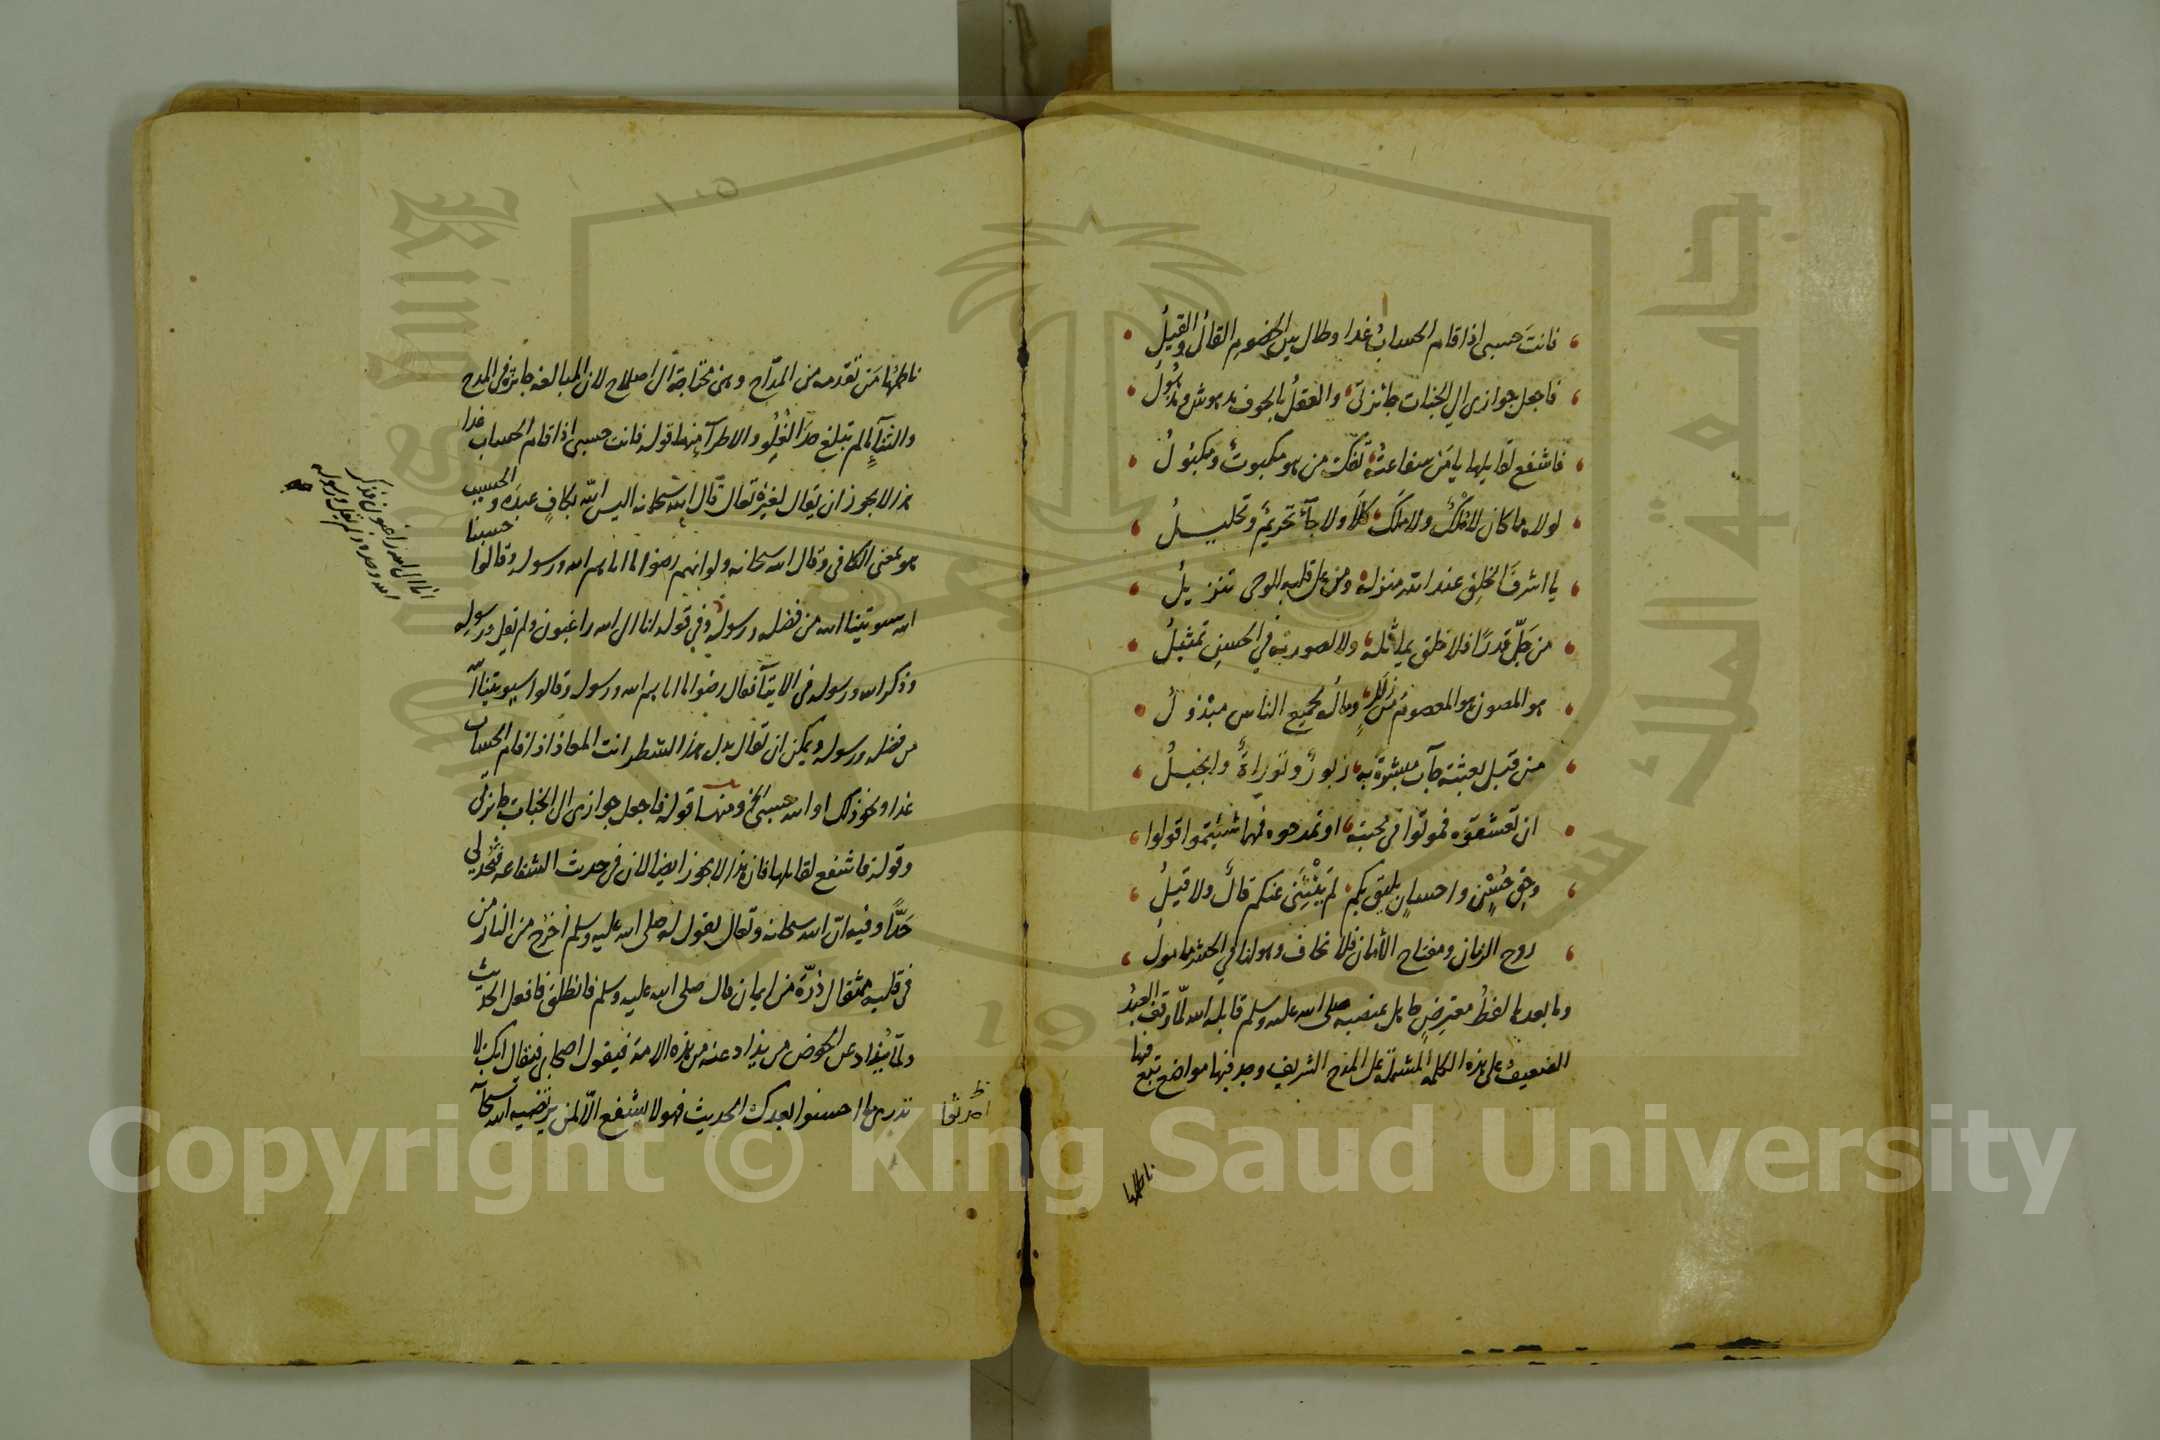 فانت حسبي اذا قام الحساب غدا وطال بين الخصوم القال والقيل
فاجعل جوازي الى الجنات جائزتي والعقل بالخوف مدهوش ومذهول
فاشفع لقايلها يا من شفاعته تفك من هو مكبوت ومكبول
لولاه ما كان لا ملك ولا ملك كلا ولا جآء تحريم وتحليل
يا اشرف الخلق عند الله منزلة ومن على قلبه للوحي تنزيل
من جل قدرا فلا خلق يماثله ولا لصورته في الحسن تمثيل
هو المصون هو المعصوم من زلل وماله لجميع الناس مبذول
من قبل بعثته جآت مبشرة به زبور وتوراة وانجيل
ان تعشقوه فموتوا في محبته او تمدحوه فمهما شئتموا قولوا
وحق حسن واحسان يليق بكم لم يثنني عنكم قال ولا قيل
روح الزمان ومفتاح الأمان فلا نخاف وهو لنا في الحشر مامول
وما بعد ما لفظ معترض جاهل بمنصبه صلى الله عليه وسلم قابله الله لما وقف العبد
الضعيف على هذه الكلمة المشتملة على المدح الشريف وجد فيها مواضع تبع فيها
ناظمها
ناظمها من تقدمه من المداح وهي محتاجة الى اصلاح لان المبالغة جايزة في المدح
والثنآء ما لم تبلغ حد الغلو والاطرآء منها قوله فانت حسبي اذا قام الحساب غدا
هذا لا يجوز ان يقال لغيره تعالى قال الله سبحانه اليس الله بكاف عبده والحسيب
هو بمعنى الكافي وقال الله سبحانه ولو انهم رضوا ما اتاهم الله ورسوله وقالوا حسبنا
الله سيوتينا الله من فضله ورسوله وفي قوله انا الى الله راغبون ولم يقل ورسوله
وذكر الله ورسوله في الايتآء فقال رضوا ما اتاهم الله ورسوله وقالوا سيوتينا الله
من فضله ورسوله ويمكن ان يقال بدل هذا الشطر انت المعاذ اذا قام الحساب
غدا ونحو ذلك او الله حسبي الخ ومنها قوله فاجعل جوازي الى الجنات جائزتي
وقوله فاشفع لقايلها فان هذا لا يجوز ايضا لان في حديث الشفاعة فيحد لي
حدا وفيه ان الله سبحانه وتعالى يقول له صلى الله عليه وسلم اخرج من النار من
في قلبه مثقال ذرة من ايمان قال صلى الله عليه وسلم فانطلق فافعل الحديث
ولما يذاد عن الحوض من يذاد عنه من هذه الامة فيقول اصحابي فيقال انك لا
تدري ما احدثوا بعدك الحديث فهو لا يشفع الا لمن يرتضيه الله سبحانه
انا الى الله راغبون فذكر
الله وحده ولم يقل ورسوله
احدثوا
Copyright © King Saud University
King Saud University
جامعة الملك سعود